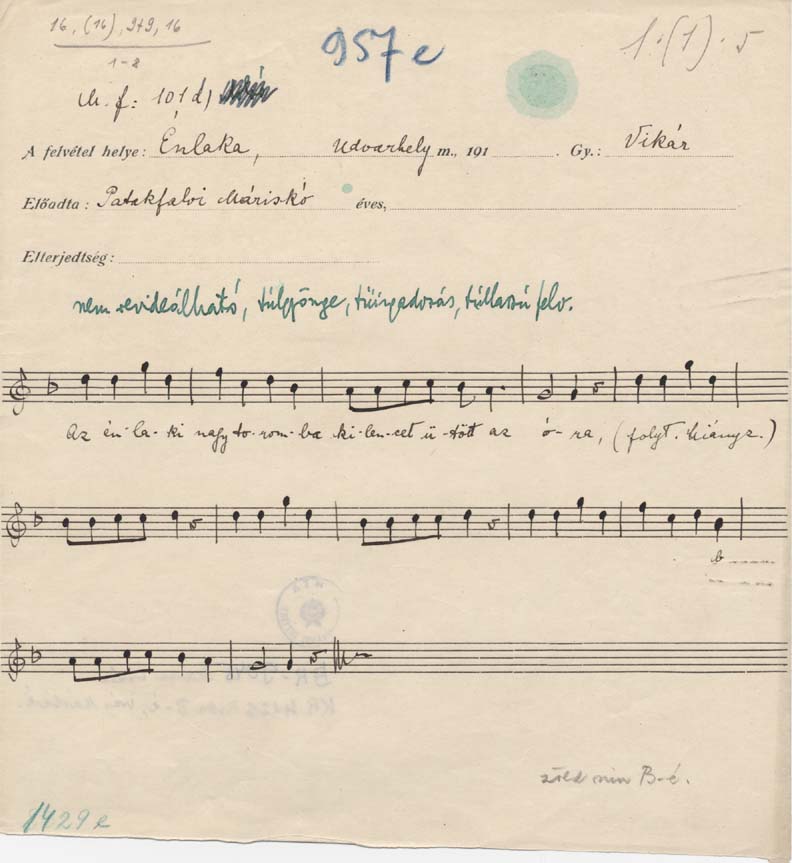 16, (16), 9+9, 16
1-2
957 e
1·(1)·5
M. f: 101 d)
A felvétel helye: Énlaka, Udvarhely m., 191 Gy.: Vikár
Előadta: Patakfalvi Máriskó éves,
Elterjedtség:
nem revideálható, túlgyönge, tűingadozás, túllassú felv.
Az én-la-ki nagy to-rom-ba ki-len-cet ü-tött az ó-ra, (folyt. hiányz.)
zöld min B-é.
1429 e